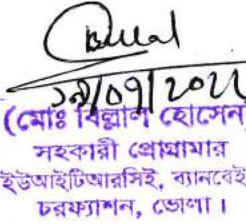 Billal
১৯/০৭/২০২২
(মোঃ বিল্লাল হোসেন)
সহকারী প্রোগ্রামার
ইউআইটিআরসিই, ব্যানবেইস
চরফ্যাশন, ভোলা।